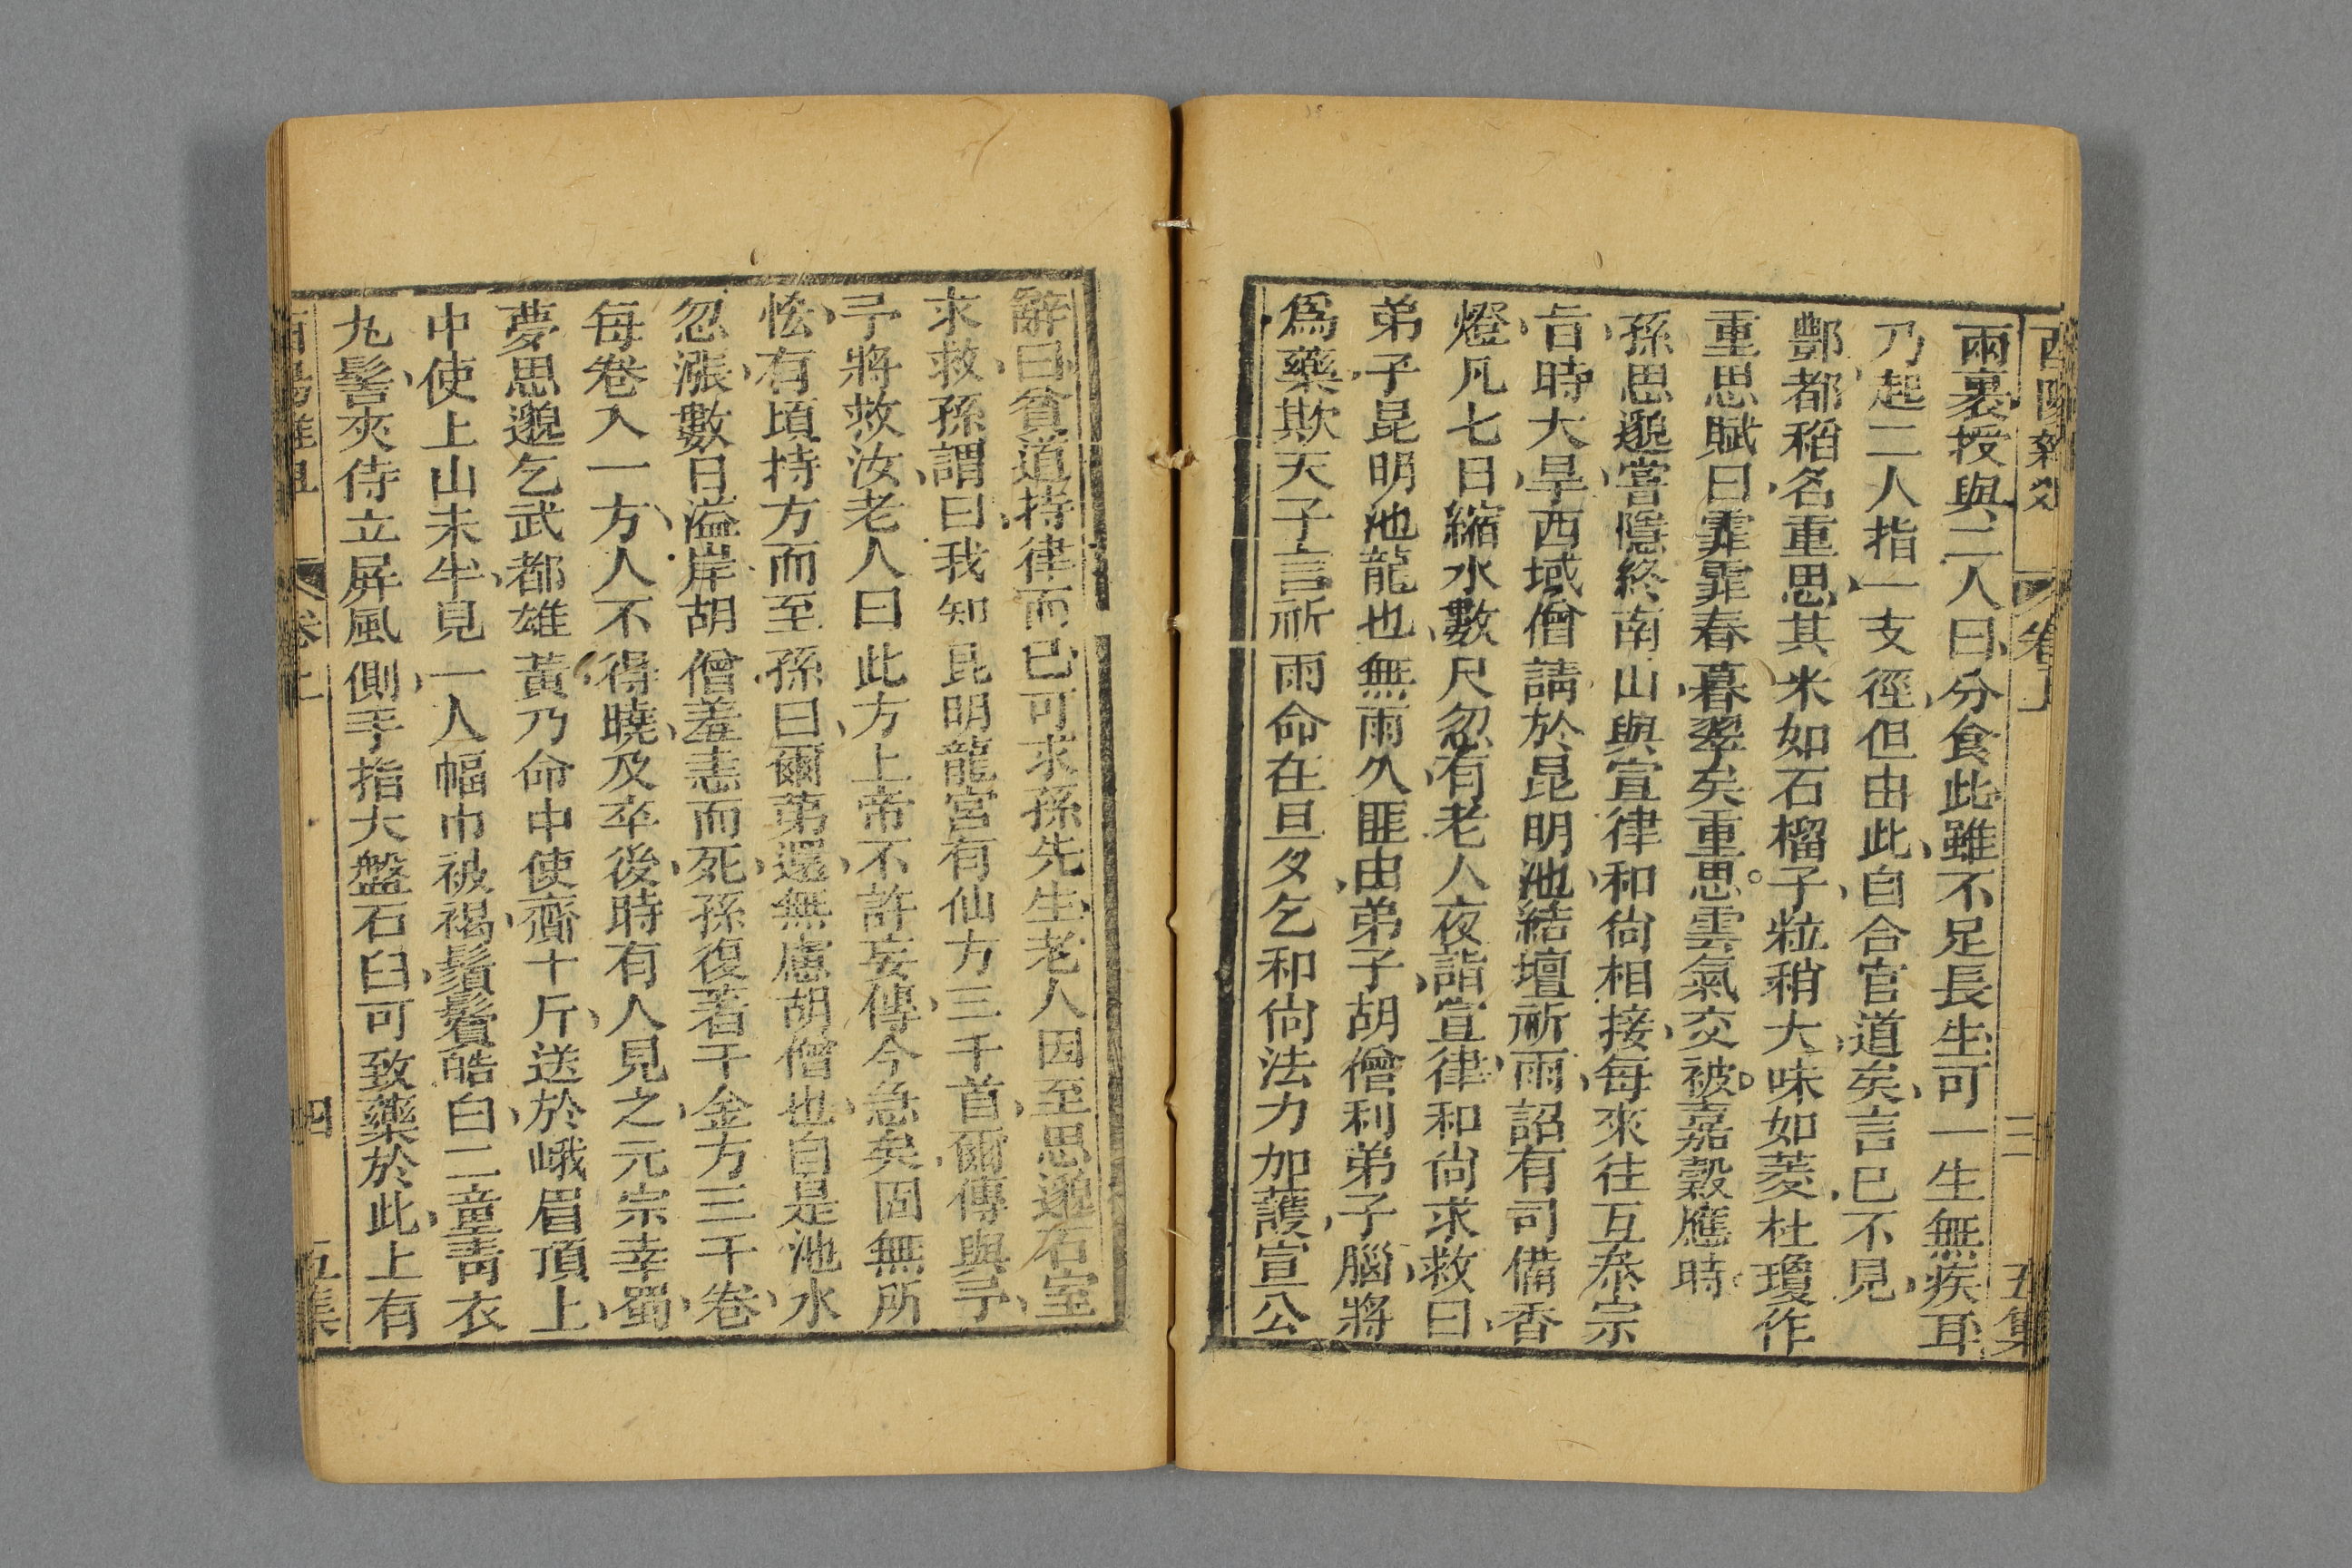 酉陽雜俎 卷上 三 五集
兩裹授與二人曰分食此雖不足長生可一生無疾耳
乃起二人指一支徑但由此自合官道矣言已不見
酆都稻名重思其米如石榴子粒稍大味如菱杜瓊作
重思賦曰霏霏春暮翠矣重思雲氣交被嘉穀應時
孫思邈嘗隱終南山與宣律和尙相接每來往互叅宗
旨時大旱西域僧請於昆明池結壇祈雨詔有司備香
燈凡七日縮水數尺忽有老人夜詣宣律和尙求救曰
弟子昆明池龍也無雨久匪由弟子胡僧利弟子腦將
爲藥欺天子言祈雨命在旦夕乞和尙法力加護宣公
辭曰貧道持律而已可求孫先生老人因至思邈石室
求救孫謂曰我知昆明龍宮有仙方三千首爾傳與予
予將救汝老人曰此方上帝不許妄傳今急矣固無所
恡有頃持方而至孫曰爾第還無慮胡僧也自是池水
忽漲數日溢岸胡僧羞恚而死孫復著千金方三千卷
每卷入一方人不得曉及卒後時有人見之元宗幸蜀
夢思邈乞武都雄黃乃命中使齎十斤送於峨眉頂上
中使上山未半見一人幅巾被褐鬚鬢皓白二童靑衣
丸髻夾侍立屛風側手指大盤石臼可致藥於此上有
酉陽雜俎 卷上 四 五集